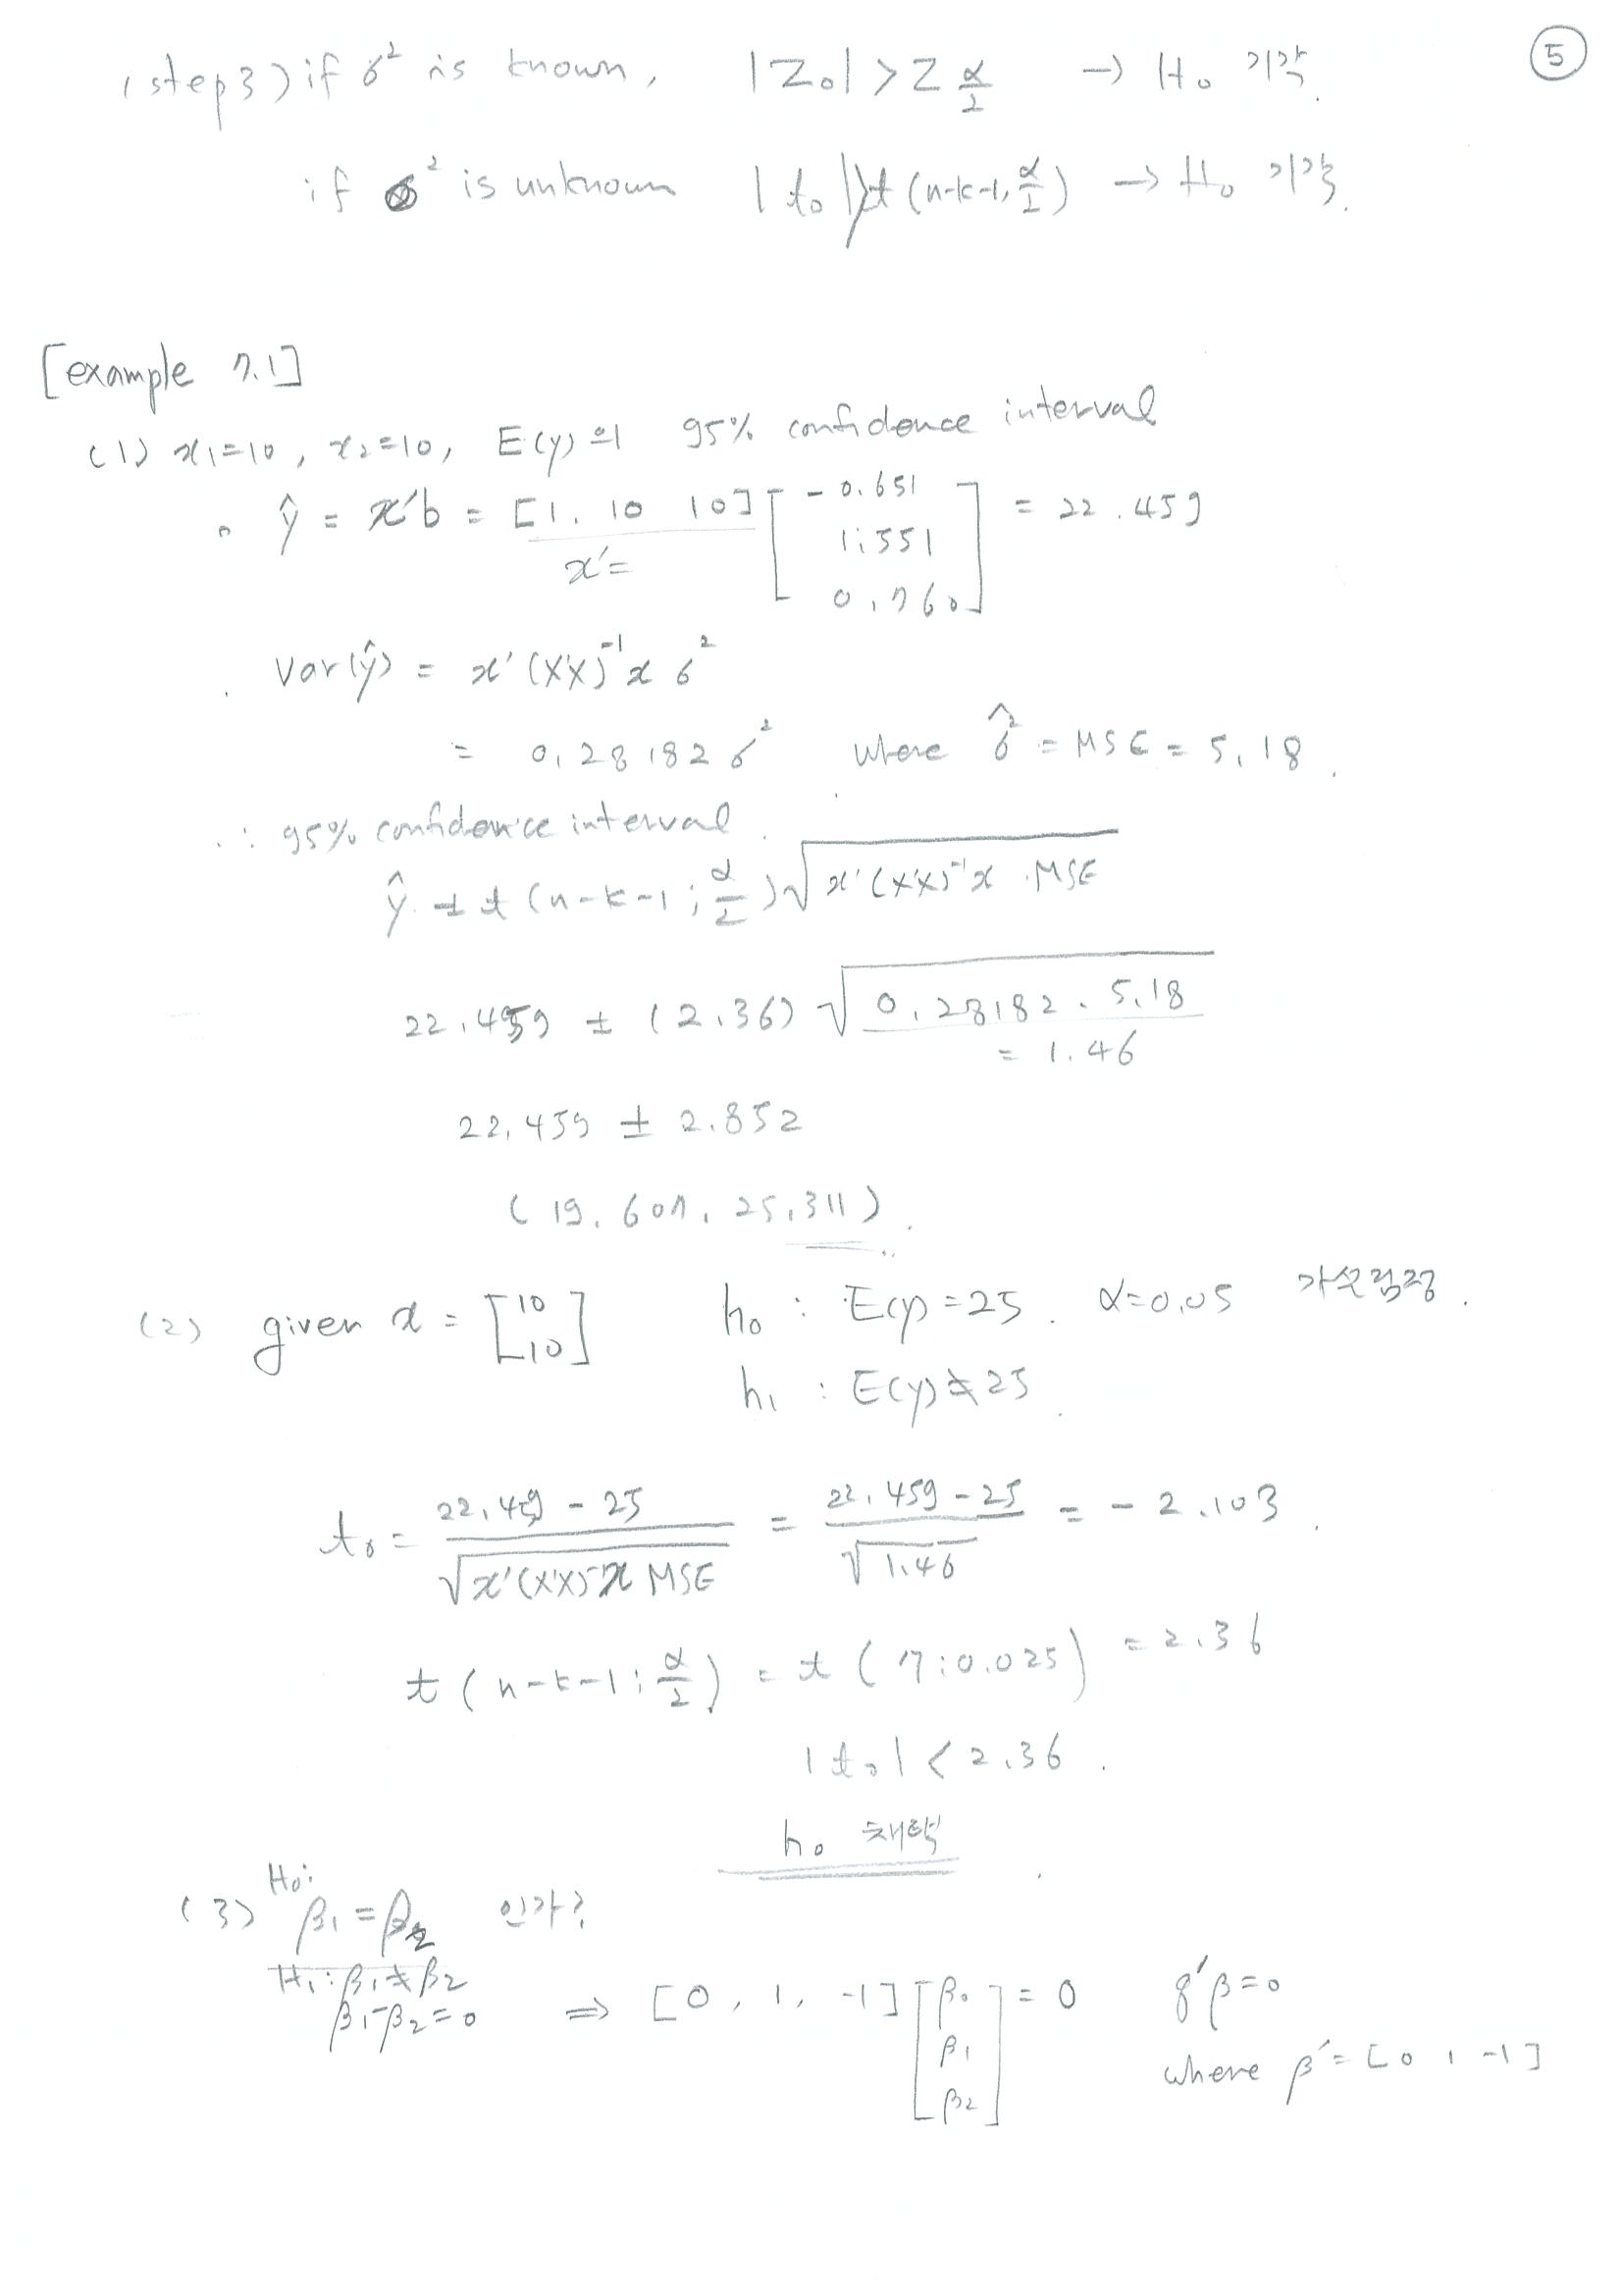 ⑤
(step3) if σ² is known, |Z₀| > Z α/2 → H₀ 기각.
if σ² is unknown |t₀| > t (n-k-1, α/2) → H₀ 기각.
[example 7.1]
(1) x₁=10, x₂=10, E(y)의 95% confidence interval
ŷ = x'b = [1, 10 10] [-0.651 1.551 0.760] = 22.459
x'=
Var(ŷ) = x'(X'X)⁻¹x σ²
= 0.28182 σ² where σ̂² = MSE = 5.18.
∴ 95% confidence interval.
ŷ ± t (n-k-1; α/2) √x'(X'X)⁻¹x · MSE
22.459 ± (2.36) √0.28182 · 5.18
= 1.46
22.459 ± 2.852
(19.607, 25.311).
(2) given x = [10 10] h₀ : E(y)=25. α=0.05 가설검정.
h₁ : E(y)≠25.
t₀ = (22.459 - 25) / √x'(X'X)⁻¹x MSE = (22.459 - 25) / √1.46 = -2.103.
t (n-k-1; α/2) = t (7; 0.025) = 2.36
|t₀| < 2.36.
h₀ 채택
(3) H₀: β₁ = β₂ 인가?
H₁: β₁ ≠ β₂
β₁-β₂=0 ⇒ [0, 1, -1] [β₀ β₁ β₂] = 0 q'β=0
where β'= [0 1 -1]